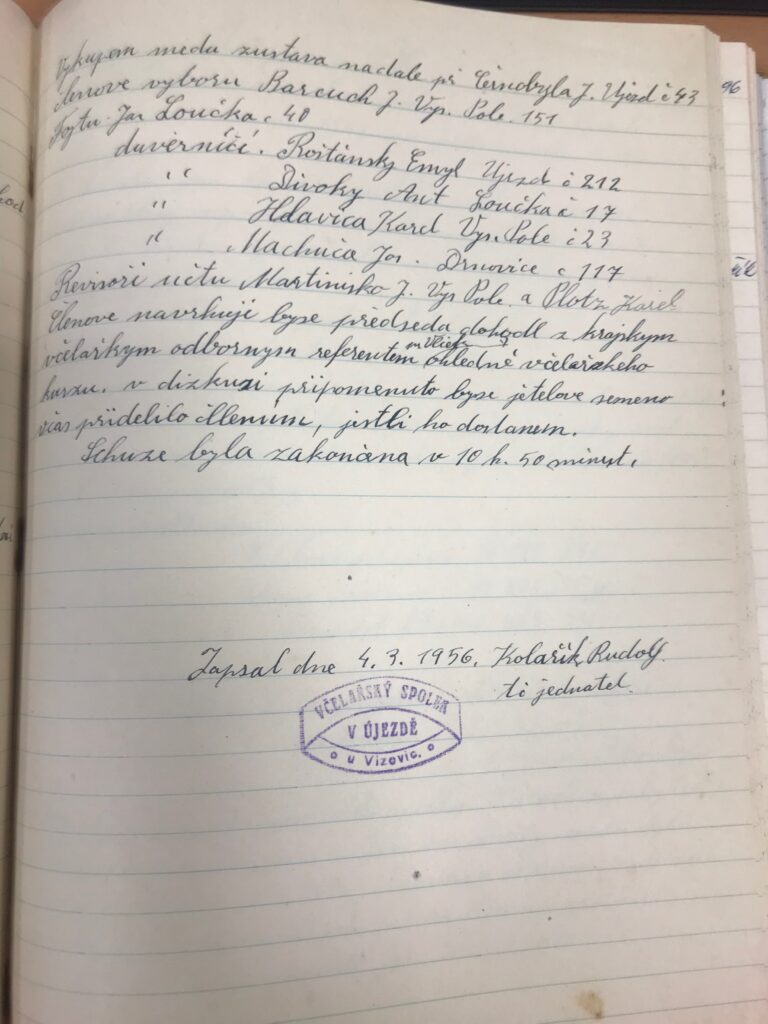 Vykupem medu zustava nadale při Černobyla J. Ujezd č 43
členove vyboru Barcuch J. Vys. Pole. 151
Fojtu Jan Loučka č 40
duverníčí. Roštánsky Emyl Ujezd č 212
" Divoky Ant Loučka č 17
" Hlavica Karel Vys. Pole č 23
" Machuča Jos. Drnovice č 117
Revisoři učtu Martinisko J. Vys Pole. a Plotz Karel
Členove navrhuji byse předseda dohodl z krajkym
včelařkym odbornym referentem ohledně včelařzkeho
kurzu. v dizkuzi připomenuto byse jetelove semeno
včas přidelilo čllenum, jestli ho dostanem.
Schuze byla zakončena v 10 h. 50 minut.
Zapsal dne 4. 3. 1956. Kolařík Rudolf.
tč jednatel.
VČELAŘSKÝ SPOLEK
V ÚJEZDĚ
u Vizovic.
96